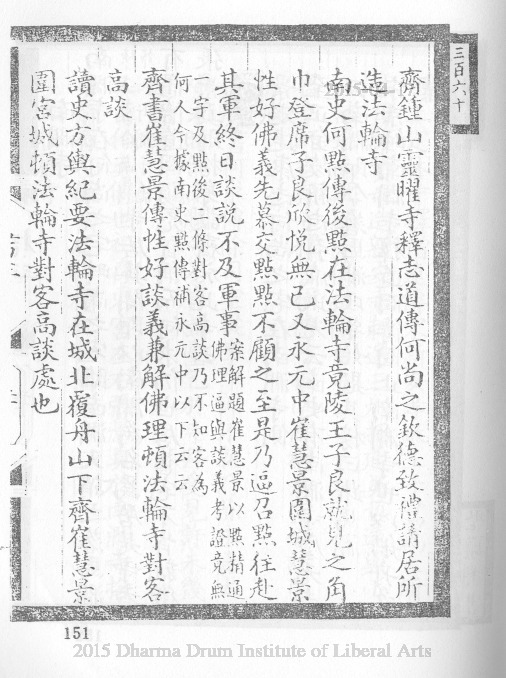 三百六十
齊鍾山靈曜寺釋志道傳何尚之欽德致禮請居所
造法輪寺
南史何點傳後點在法輪寺竟陵王子良就見之角
巾登席子良欣悦無已又永元中崔慧景圍城慧景
性好佛義先慕交點點不顧之至是乃逼召點往赴
其軍終日談說不及軍事案解題崔慧景以點精通
佛理逼與談義考證竟無
一字及點後二條對客高談乃不知客為
何人今據南史點傳補永元中以下云云
齊書崔慧景傳性好談義兼解佛理頓法輪寺對客
高談
讀史方輿紀要法輪寺在城北覆舟山下齊崔慧景
圍宮城頓法輪寺對客高談處也
151
2015 Dharma Drum Institute of Liberal Arts